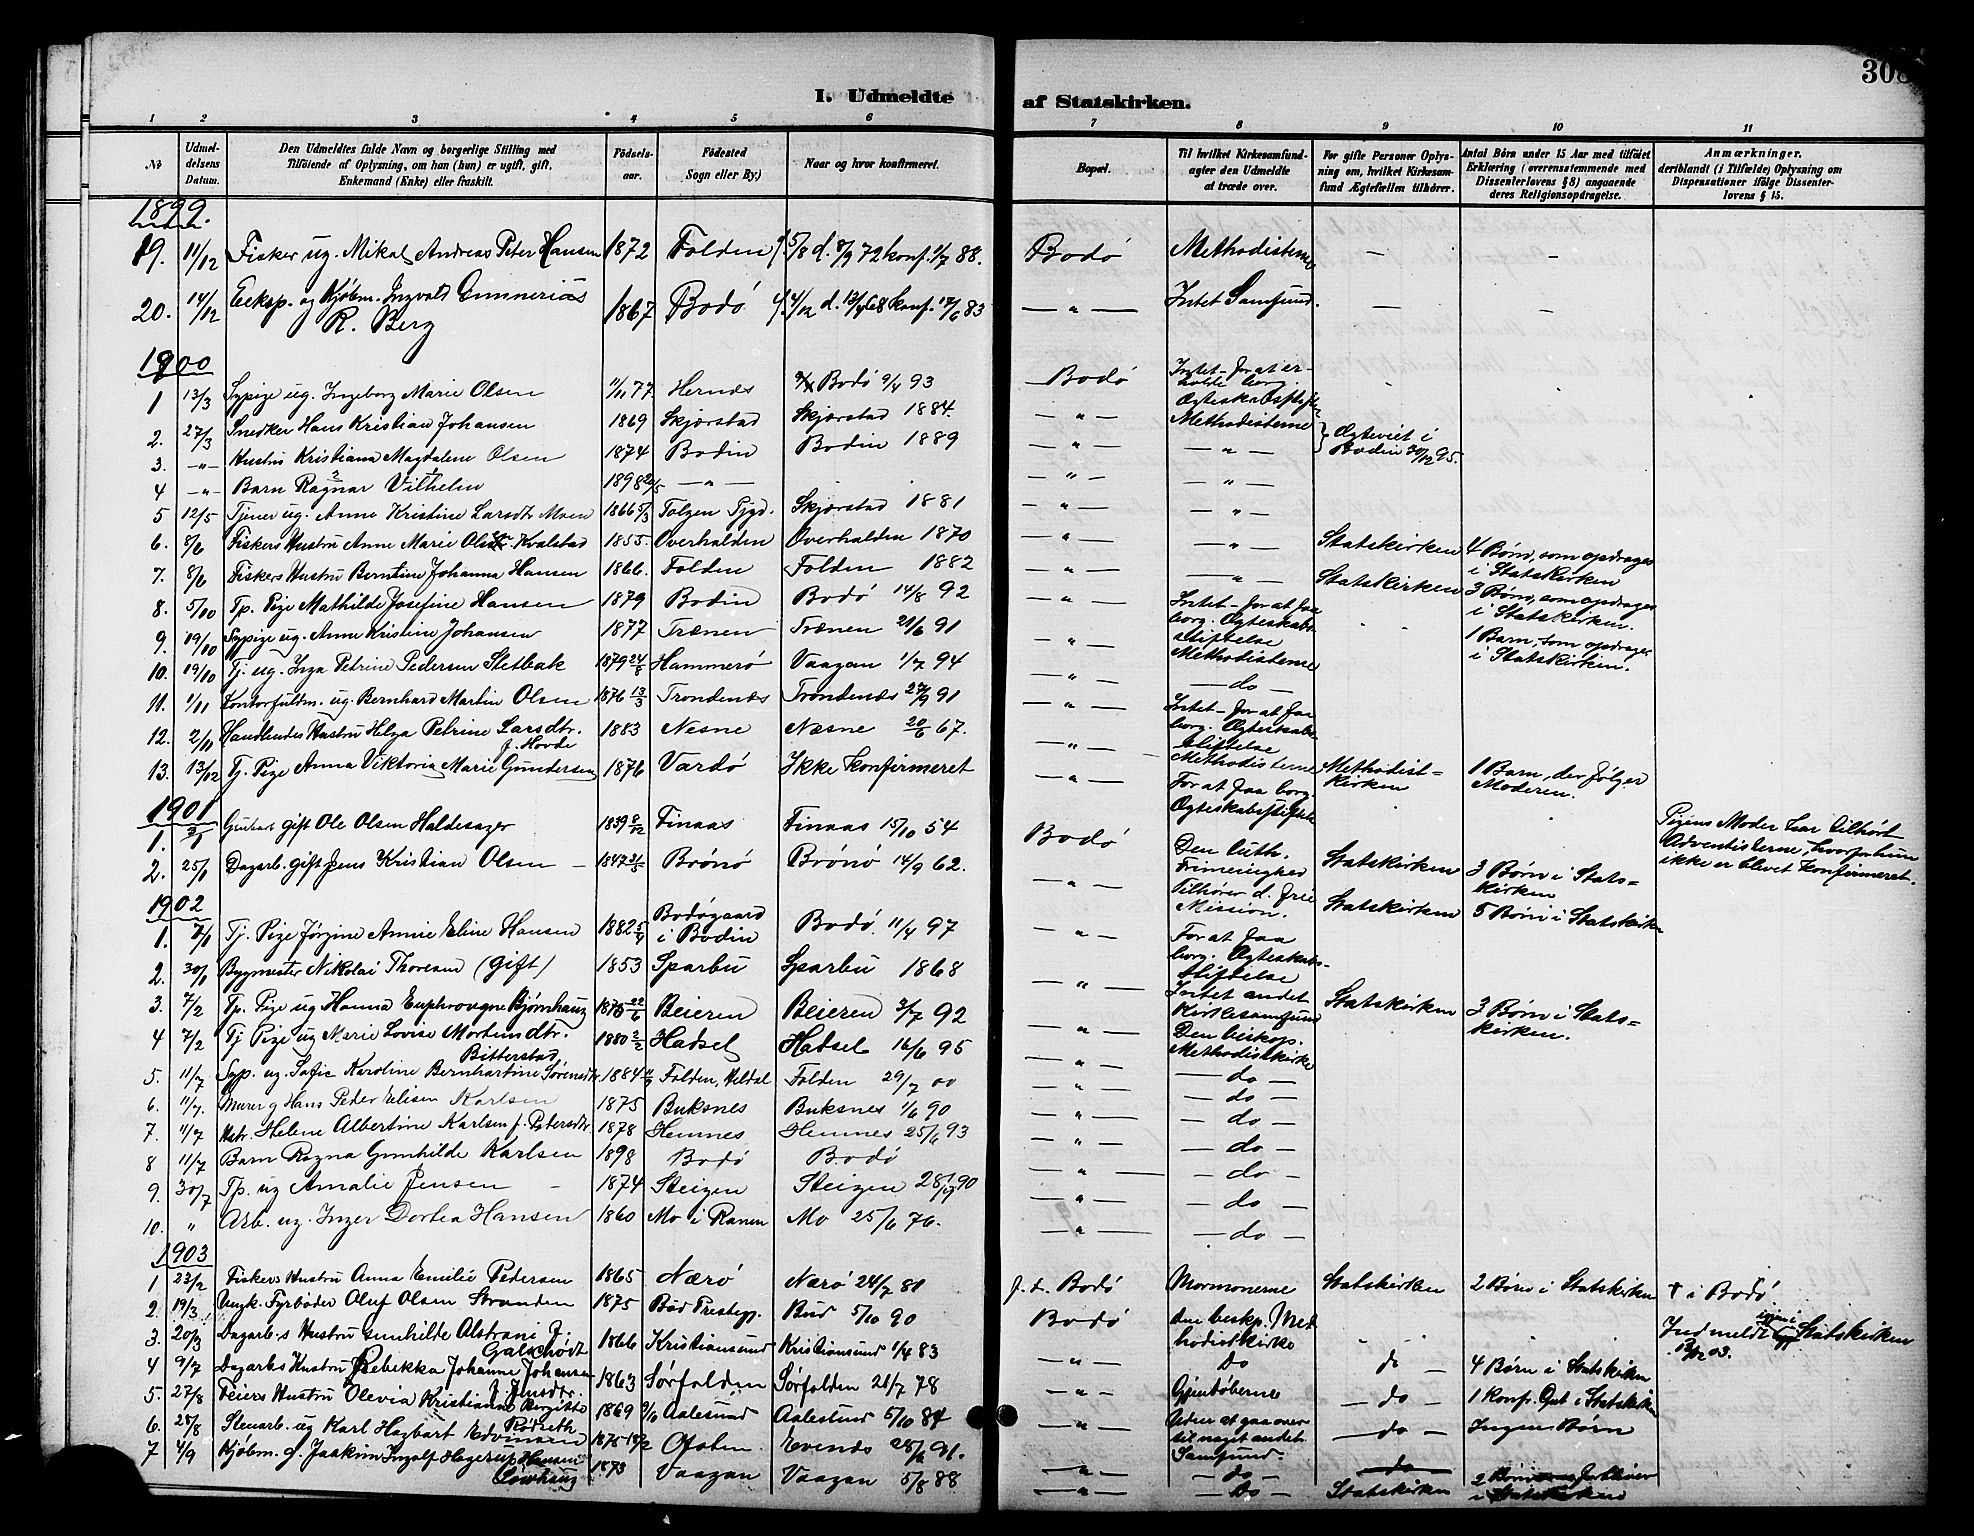 308
I. Udmeldte af Statskirken.
1 2 3 4 5 6 7 8 9 10 11
No
Udmeldelsens Datum.
Den Udmeldtes fulde Navn og borgerlige Stilling med
Tilföiende af Oplysning, om han (hun) er ugift, gift,
Enkemand (Enke) eller fraskilt.
Födselsaar.
Födested
Sogn eller By.)
Naar og hvor konfirmeret.
Bopæl.
Til hvilket Kirkesamfund
agter den Udmeldte
at træde over.
For gifte Personer Oplysning om, hvilket Kirkesamfund Ægtefællen tilhörer.
Antal Börn under 15 Aar med tilföiet
Erklæring (overensstemmende med
Dissenterlovens § 8) angaaende
deres Religionsopdragelse.
Anmærkninger,
deriblandt (i Tilfælde) Oplysning om
Dispensationer ifölge Dissenterlovens § 15.
1899.
19. 11/12 Fisker ug. Mikal Andreas Peter Hansen 1872 Folden f. 5/8 d. 8/9 72 konf. 1/7 88. Bodö Methodisterne — -
20. 14/12 Eeksp. og Kjöbm. Ingvald Gunnerius
R. Berg 1867 Bodö f. 4/12 d. 13/4 68 konf. 17/6 83 — " — Intet Samfund. — -
1900
1 13/3 Sypige ug. Ingeborg Marie Olsen 11/11 77 Hernes Bodö 9/4 93 Bodö Intet - for at erholde borg. Ægteskabsstiftelse
2. 27/3 Snedker Hans Kristian Johansen 1869 Skjerstad Skjerstad 1884. — " — Methodisterne Ægteviet i
3. -"- Hustru Kristiana Magdalene Olsen 1874 Bodin Bodin 1889 — " — — " — Bodin 30/12 95.
4 -"- Barn Ragnar Vilhelm 1898 20/5 — " — — " — — " —
5 12/5 Tjener ug. Anne Kristine Larsdtr Moen 1866 5/3 Skjerstad 1881 — " — — " —
6. 8/6 Fiskers Hustru Anne Marie Olsdtr. Kvalstad 1855. Overhalden Overhalden 1870 — " — — " — Statskirken 4 Börn, som opdrages
i Statskirken
7. 8/6 Fiskers Hustru Berntine Johanna Hansen 1866. Folden Folden 1882 — " — — " — Statskirken 3 Börn, som opdrages
i Statskirken.
8. 5/10 Tp. Pige Mathilde Josefine Hansen 1879 Bodin Bodö 14/8 92 — " — Intet - for at faa
borg. Ægteskabsstiftelse 1 Barn, som opdrages
i Statskirken.
9. 19/10 Sypige ug. Anne Kristine Johansen 1877 Trænen Trænen 21/6 91 — " — Methodisterne
10. 19/10 Tj. ug. Inga Petrine Pedersen Sletbak 1879 24/8 Hammerö Vaagan 1/7 94 — " — — do —
11. 1/11 Kontorfuldm. ug. Bernhard Martin Olsen 1876 13/3 Trondenes Trondenes 27/9 91 — " — Intet - for at faa
borg. Ægteskabsstiftelse
12. 2/11 Handlendes Hustru Helga Petrine Larsdtr.
f. Hovde 1883 Nesne Næsne 20/6 67. — " — Methodisterne Methodistkirken 1 Barn, der fölger
Moderen.
13. 13/12 Tj. Pige Anna Viktoria Marie Gundersen 1876 Vardö Ikke konfirmeret — " — For at faa borg.
Ægteskabsstiftelse Pigens Moder har tilhört
Adventisterne, hvorfor hun
ikke er blevet konfirmeret.
1901
1. gift Ole Olsen Haldesager 1839 8/12 Finaas Finaas 15/10 54 Bodö Den luth.
Frimenighed Statskirken 3 Börn i Statskirken
2. 25/1 Dagarb. gift Jens Kristian Olsen 1847 31/5 Brönö Brönö 14/9 62. — " — Tilhörer d. frie
Mission. Statskirken 5 Börn i Statskirken
1902
1. 7/1 Tj. Pige Jörgine Annie Eline Hansen 1882 5/4 Bodögaard
i Bodin Bodö. 11/4 97 — " — For at faa
borg. Ægteskabsstiftelse
2. 30/1 Bygmester Nikolai Thoresen (gift) 1853 Sparbu Sparbu 1868 — " — Intet andet
Kirkesamfund Statskirken 3 Börn i Statskirken.
3. 7/2 Tp. Pige ug Hanna Euphrosyne Bjørnhaug 1875 22/6 Beieren Beieren 3/7 92 — " — Den biskop.
Methodistkirke
4 7/2 Tj Pige ug Marie Lovise Mortensdtr.
Bitterstad 1880 2/2 Hadsel Hadsel 16/6 95 — " — — do —
5. 11/7 Syp. ug. Sofie Karoline Bernhartine Sörensdtr. 1884 Folden, Heldal Folden 29/7 00 — " — — do —
6. 11/7. Murer g Hans Peder Elisen Karlsen 1875 Buksnes Buksnes 1/6 90 — " — — do —
7. 11/7 Hstr. Helene Albertine Karlsen f. Petersdtr. 1878 Hemnes Hemnes 25/6 93 — " — — do —
8 11/7 Barn Ragna Gunhilde Karlsen 1898 Bodö Bodö — " — — do —
9. 30/7 Tp. ug Amalie Jensen 1874 Steigen Steigen 28/9 90 — " — — do —
10. " Arb. ug. Inger Dortea Hansen 1860 Mo i Ranen Mo 25/6 76. — " — — do —
1903
1 23/2 Fiskers Hustru Anna Emilie Pedersen 1865 Nærö Nærö 24/7 81 f. t. Bodö Mormonerne Statskirken 2 Börn i Statskirken † i Bodö
2. 19/3 Ungk. Fyrböder Oluf Olsen Stranden 1875 Böd Prestegj. Bud 5/10 90 Bodö den beskp. Methodistkirke Indmeldt igjen i Statskirken
12/12 03.
3. 20/3 Dagarb.s Hustru Gunhilde Alstrani f.
Galschödt 1866 Kristiansund Kristiansund 1/4 83 — " — Do do 4 Börn i Statskirken
4 9/7 Dagarbs Hustru Rebekka Johanne Johansen
f. Jensdtr. 1863 Sörfolden Sörfolden 21/7 78 — " — Gjendöberne — do — 1 konf. Gut i Statskirken
5. 27/8 Feiers Hustru Olevia Kristianne Birgitte
1869 9/10 Aalesund Aalesund 5/10 84 — " — Uden at gaa over
til noget andet
Samfund. — do — Ingen Börn
6. 28/8 Stenarb. ug Karl Hagbart Edvinsen 1875 18/2 Ofoten. Evenes 28/6 91. — " — — do — — do —
7 4/9 Kjöbm. g. Joakim Ingolf Hagerup Hansen
Løvhaug 1873 Vaagan Vaagan 5/8 88 — " — — Do — Statskirken 2 Börn
i Statskirken